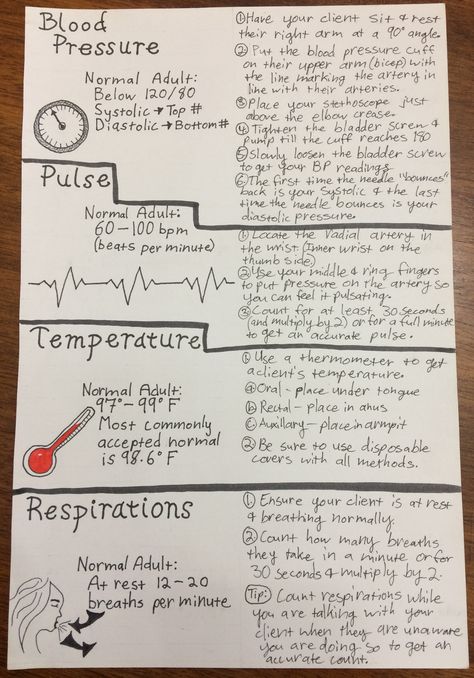 Blood
Pressure
Normal Adult:
Below 120/80
Systolic → Top #
Diastolic → Bottom #
① Have your client sit & rest
their right arm at a 90° angle.
② Put the blood pressure cuff
on their upper arm (bicep) with
the line marking the artery in
line with their arteries.
③ Place your stethoscope just
above the elbow crease.
④ Tighten the bladder screw &
pump till the cuff reaches 180
⑤ Slowly loosen the bladder screw
to get your BP readings.
⑥ The first time the needle "bounces"
back is your systolic & the last
time the needle bounces is your
diastolic pressure.
Pulse
Normal Adult:
60-100 bpm
(beats per minute)
① Locate the radial artery in
the wrist. (Inner wrist on the
thumb side)
② Use your middle & ring fingers
to put pressure on the artery so
you can feel it pulsating.
③ Count for at least 30 seconds
(and multiply by 2) or for a full minute
to get an accurate pulse.
Temperature
Normal Adult:
97°-99° F
Most commonly
accepted normal
is 98.6° F
① Use a thermometer to get
a client's temperature.
ⓐ Oral - place under tongue
ⓑ Rectal - place in anus
ⓒ Auxillary - place in armpit
② Be sure to use disposable
covers with all methods.
Respirations
Normal Adult:
At rest 12-20
breaths per minute
① Ensure your client is at rest
& breathing normally.
② Count how many breaths
they take in a minute or for
30 seconds & multiply by 2.
Tip: Count respirations while
you are talking with your
client when they are unaware
you are doing so to get an
accurate count.